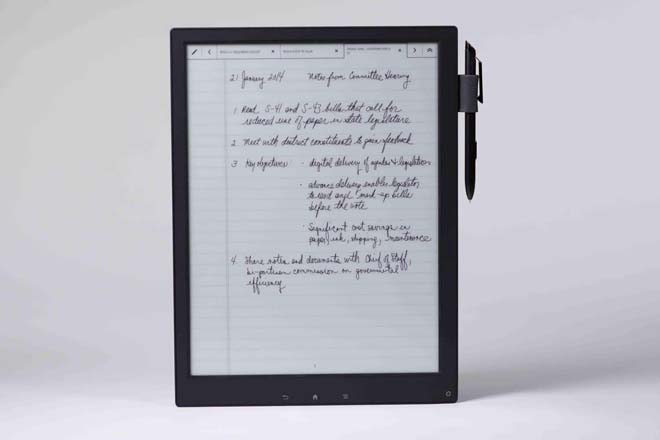 21 January 2014 Notes from Committee Hearing
1 Read S-41 and S-43 bills that call for
reduced use of paper in state legislature
2 Meet with district constituents to gain feedback
3 Key objectives: · digital delivery of agendas & legislation
· advance delivery enables legislators
to read and mark-up bills
before the vote
· Significant cost savings in
paper, ink, shipping, maintenance
4. Share notes and documents with Chief of Staff,
bi-partisan commission on governmental
efficiency
1